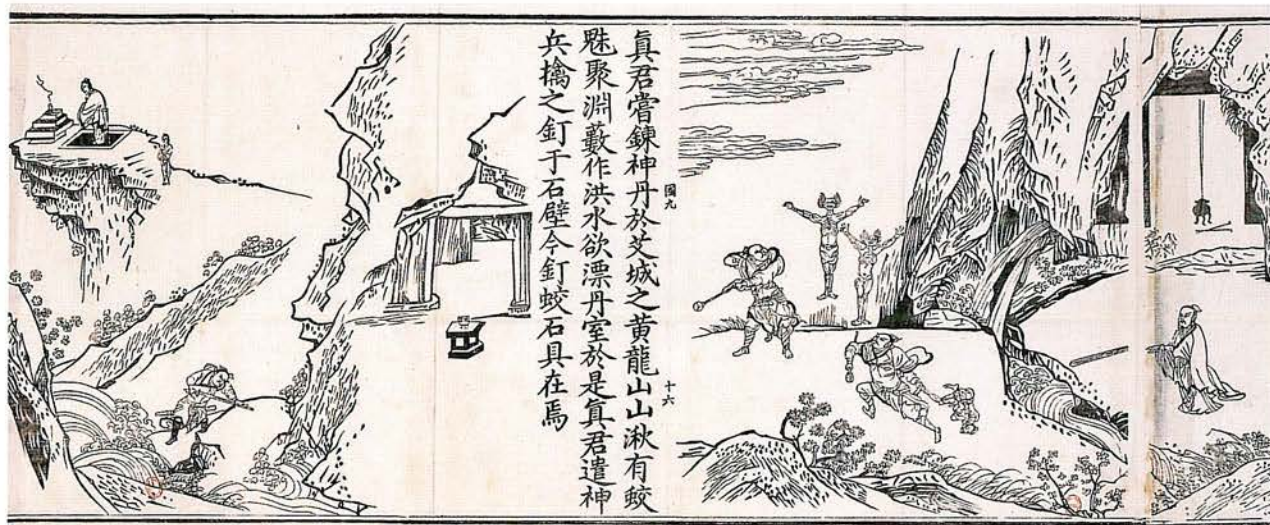 真君嘗鍊神丹於艾城之黄龍山山湫有蛟
魅聚淵藪作洪水欲漂丹室於是真君遣神
兵擒之釘于石壁今釘蛟石具在焉
國九
十六